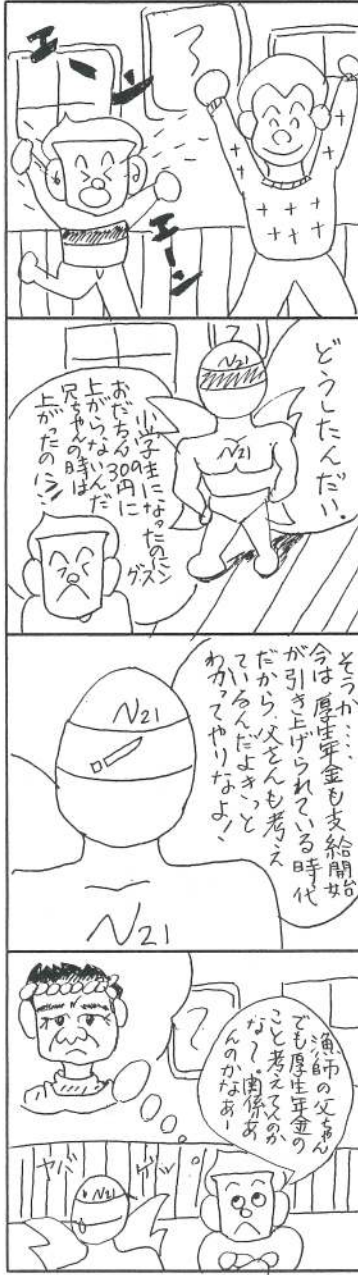 エーン
エーン
どうしたんだい。
N21
N21
小学生になったのに
おだちん30円に
上がらないんだ
兄ちゃんの時は
上がったのに!!
グスン
そうか‥‥
今は厚生年金も支給開始
が引き上げられている時代
だから、父さんも考え
ているんだよきっと
わかってやりなよ!
N21
N21
漁師の父ちゃん
でも厚生年金の
こと考えてんのか
な〜。関係あ
んのかなあー
ゲッ
ヤバ
N21